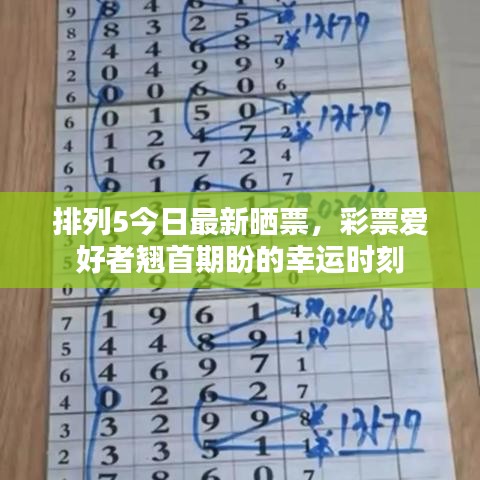 9 8 4
8 8 3 2 5 13579
2 4 4 6 8 7
2 0 4 9 9 9
6 0 0 6 0 6
6 0 1 5 0 1 13579
4 1 2 4 7 2
6 1 6 7 2 4
7 9 1 6 6 7
排列5今日最新晒票，彩票爱
好者翘首期盼的幸运时刻
7 1 9 6 1 4 02468
5 4 4 8 9 1
6 4 6 9 7 1
4 0 2 6 2 7
3 3 2 9 9 8
2 3 3 5 1 1 13579
7 8 6 0 7